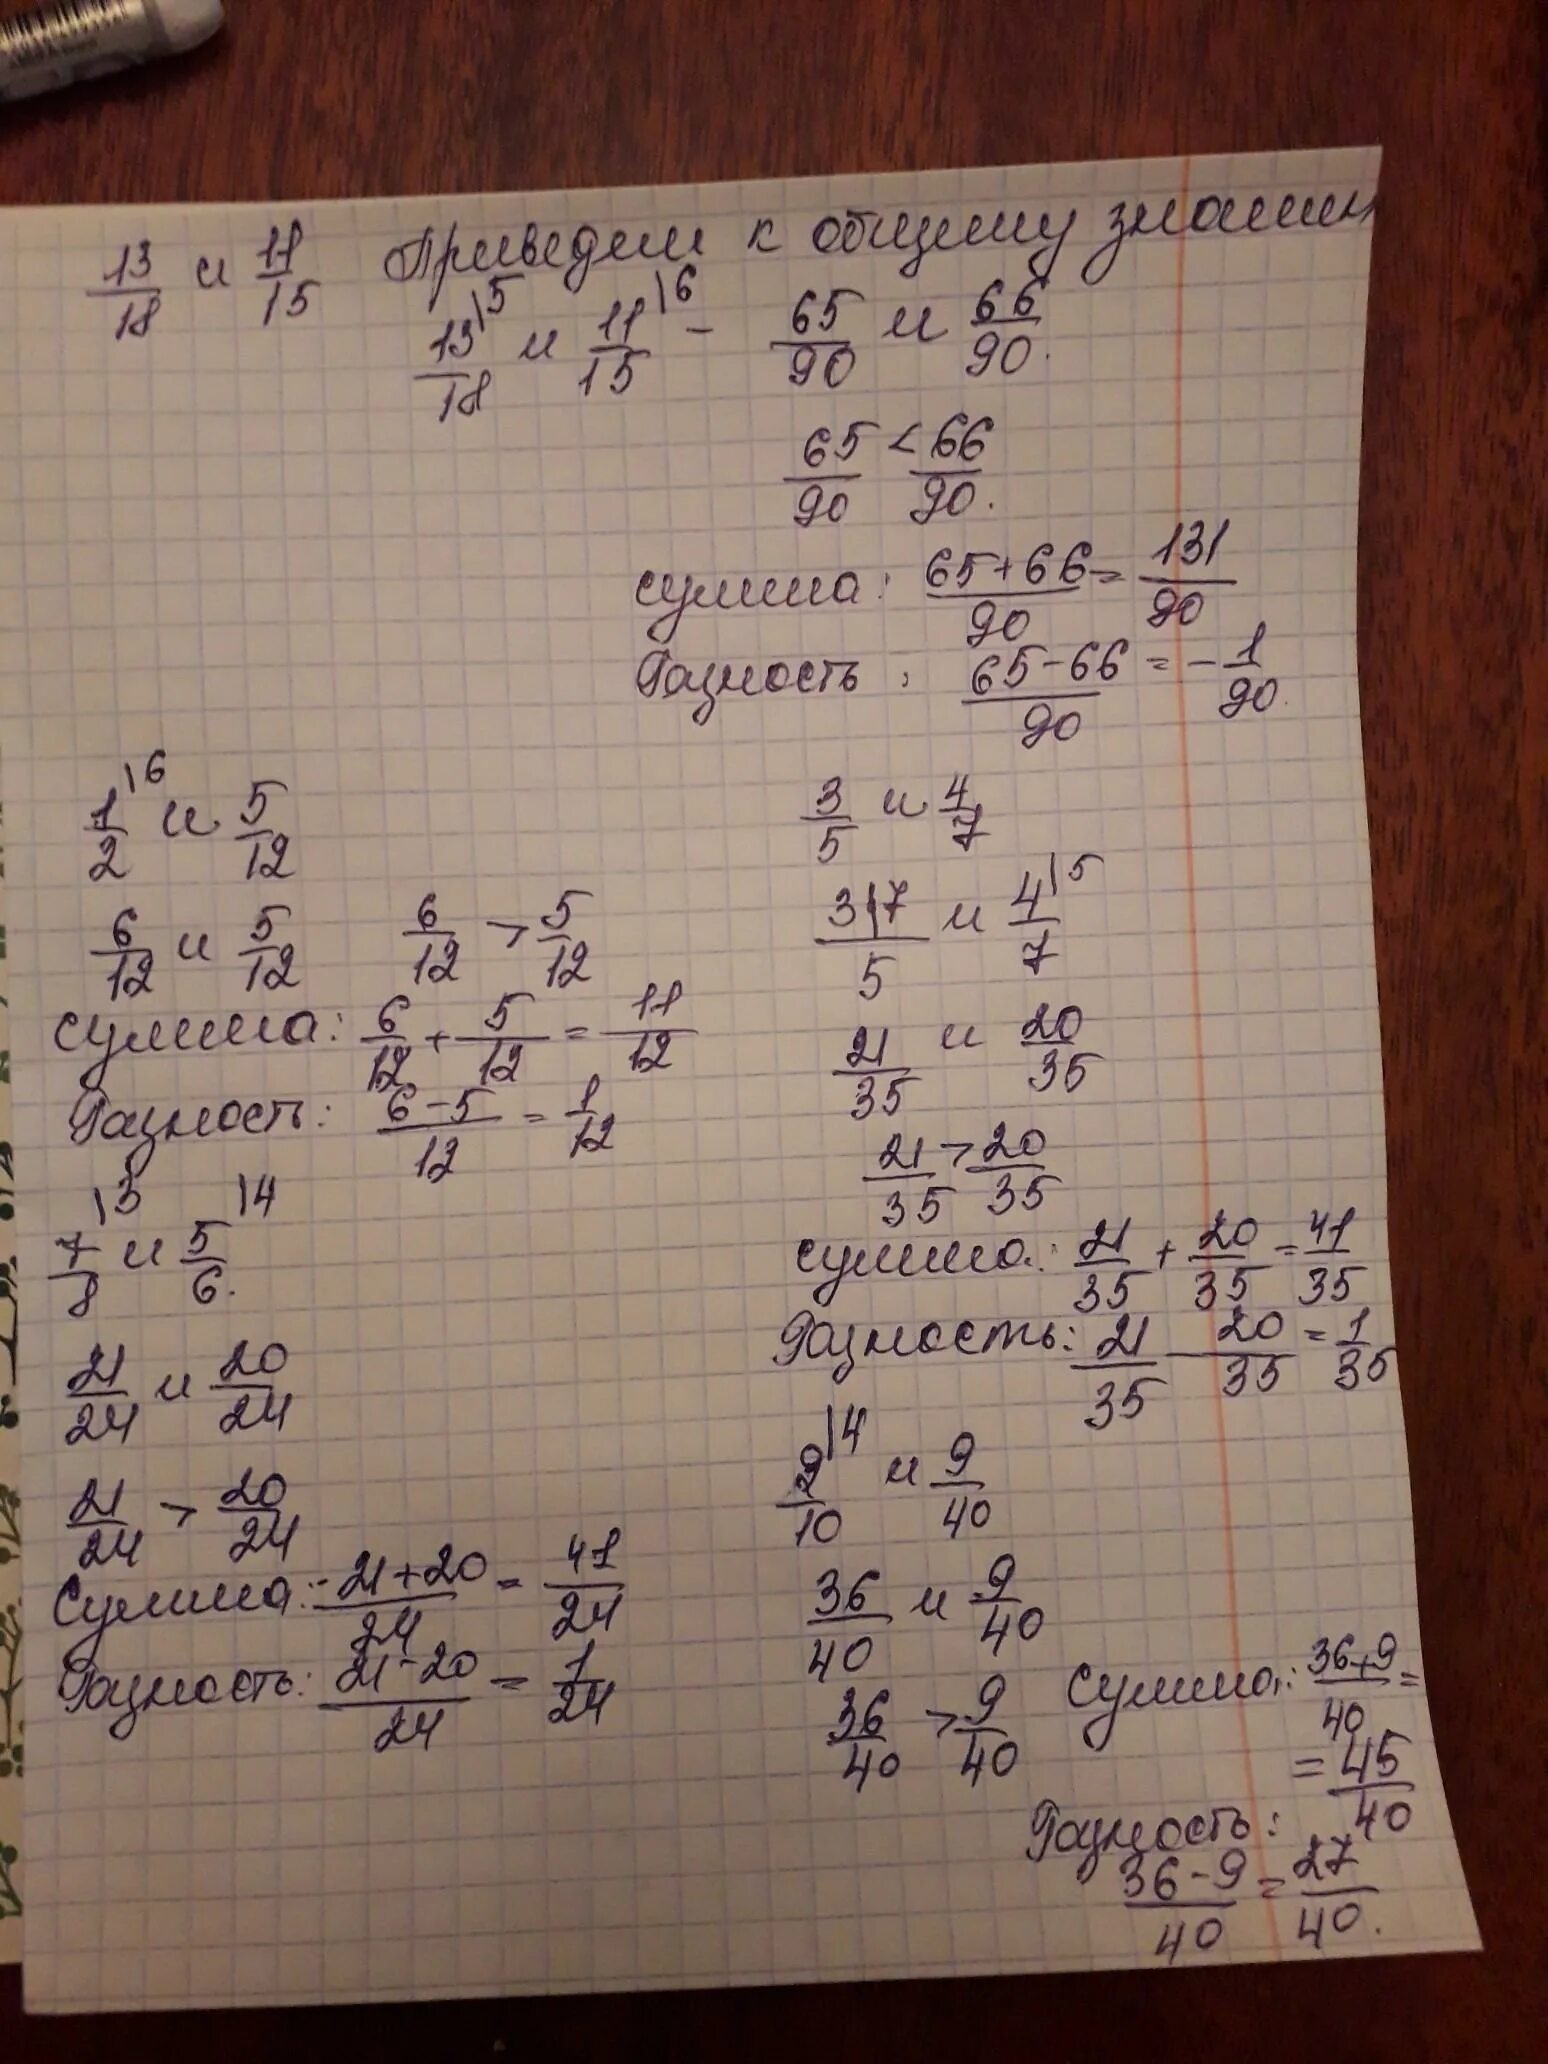 13/18 и 11/15 Приведем к общему знамен
13\5/18 и 11\6/15 - 65/90 и 66/90.
65/90 < 66/90.
сумма: 65+66/90 = 131/90
Разность: 65-66/90 = -1/90.
1\6/2 и 5/12
6/12 и 5/12 6/12 > 5/12
сумма: 6/12 + 5/12 = 11/12
Разность: 6-5/12 = 1/12
7\3/8 и 5\4/6.
21/24 и 20/24
21/24 > 20/24
Сумма: 21+20/24 = 41/24
Разность: 21-20/24 = 1/24
3/5 и 4/7
3\7/5 и 4\5/7
21/35 и 20/35
21/35 > 20/35
сумма: 21/35 + 20/35 = 41/35
Разность: 21/35 - 20/35 = 1/35
9\4/10 и 9/40
36/40 и 9/40
36/40 > 9/40
Сумма: 36+9/40 =
= 45/40
Разность:
36-9/40 = 27/40.